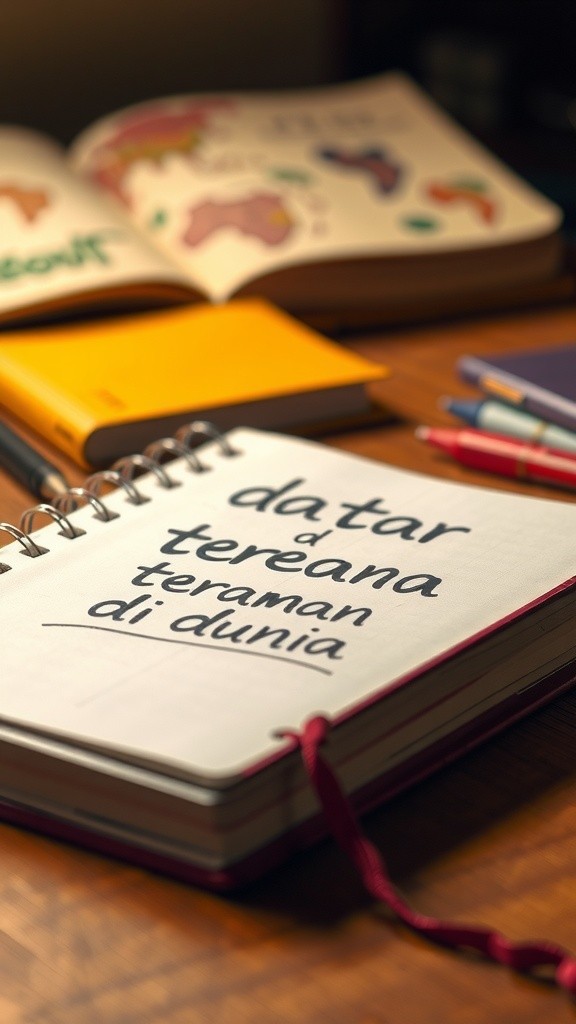 datar
d
tereana
teraman
di dunia